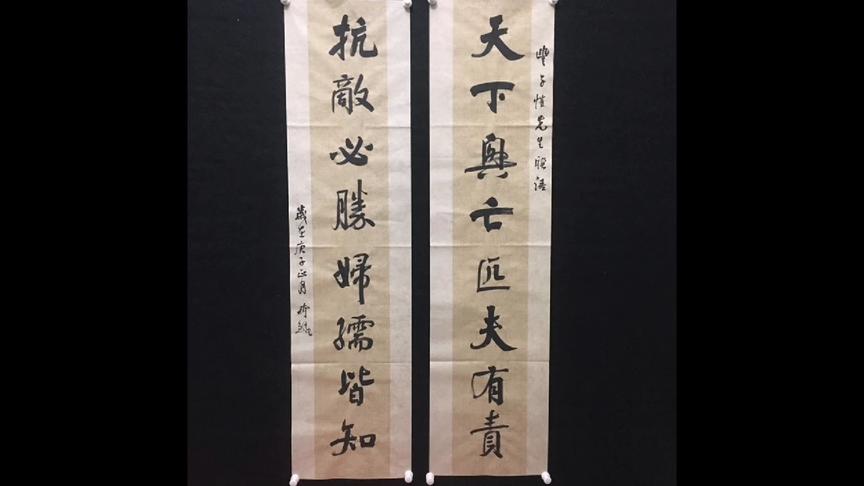 豐子愷先生聯語
天下興亡匹夫有責
抗敵必勝婦孺皆知
歲在庚子正月